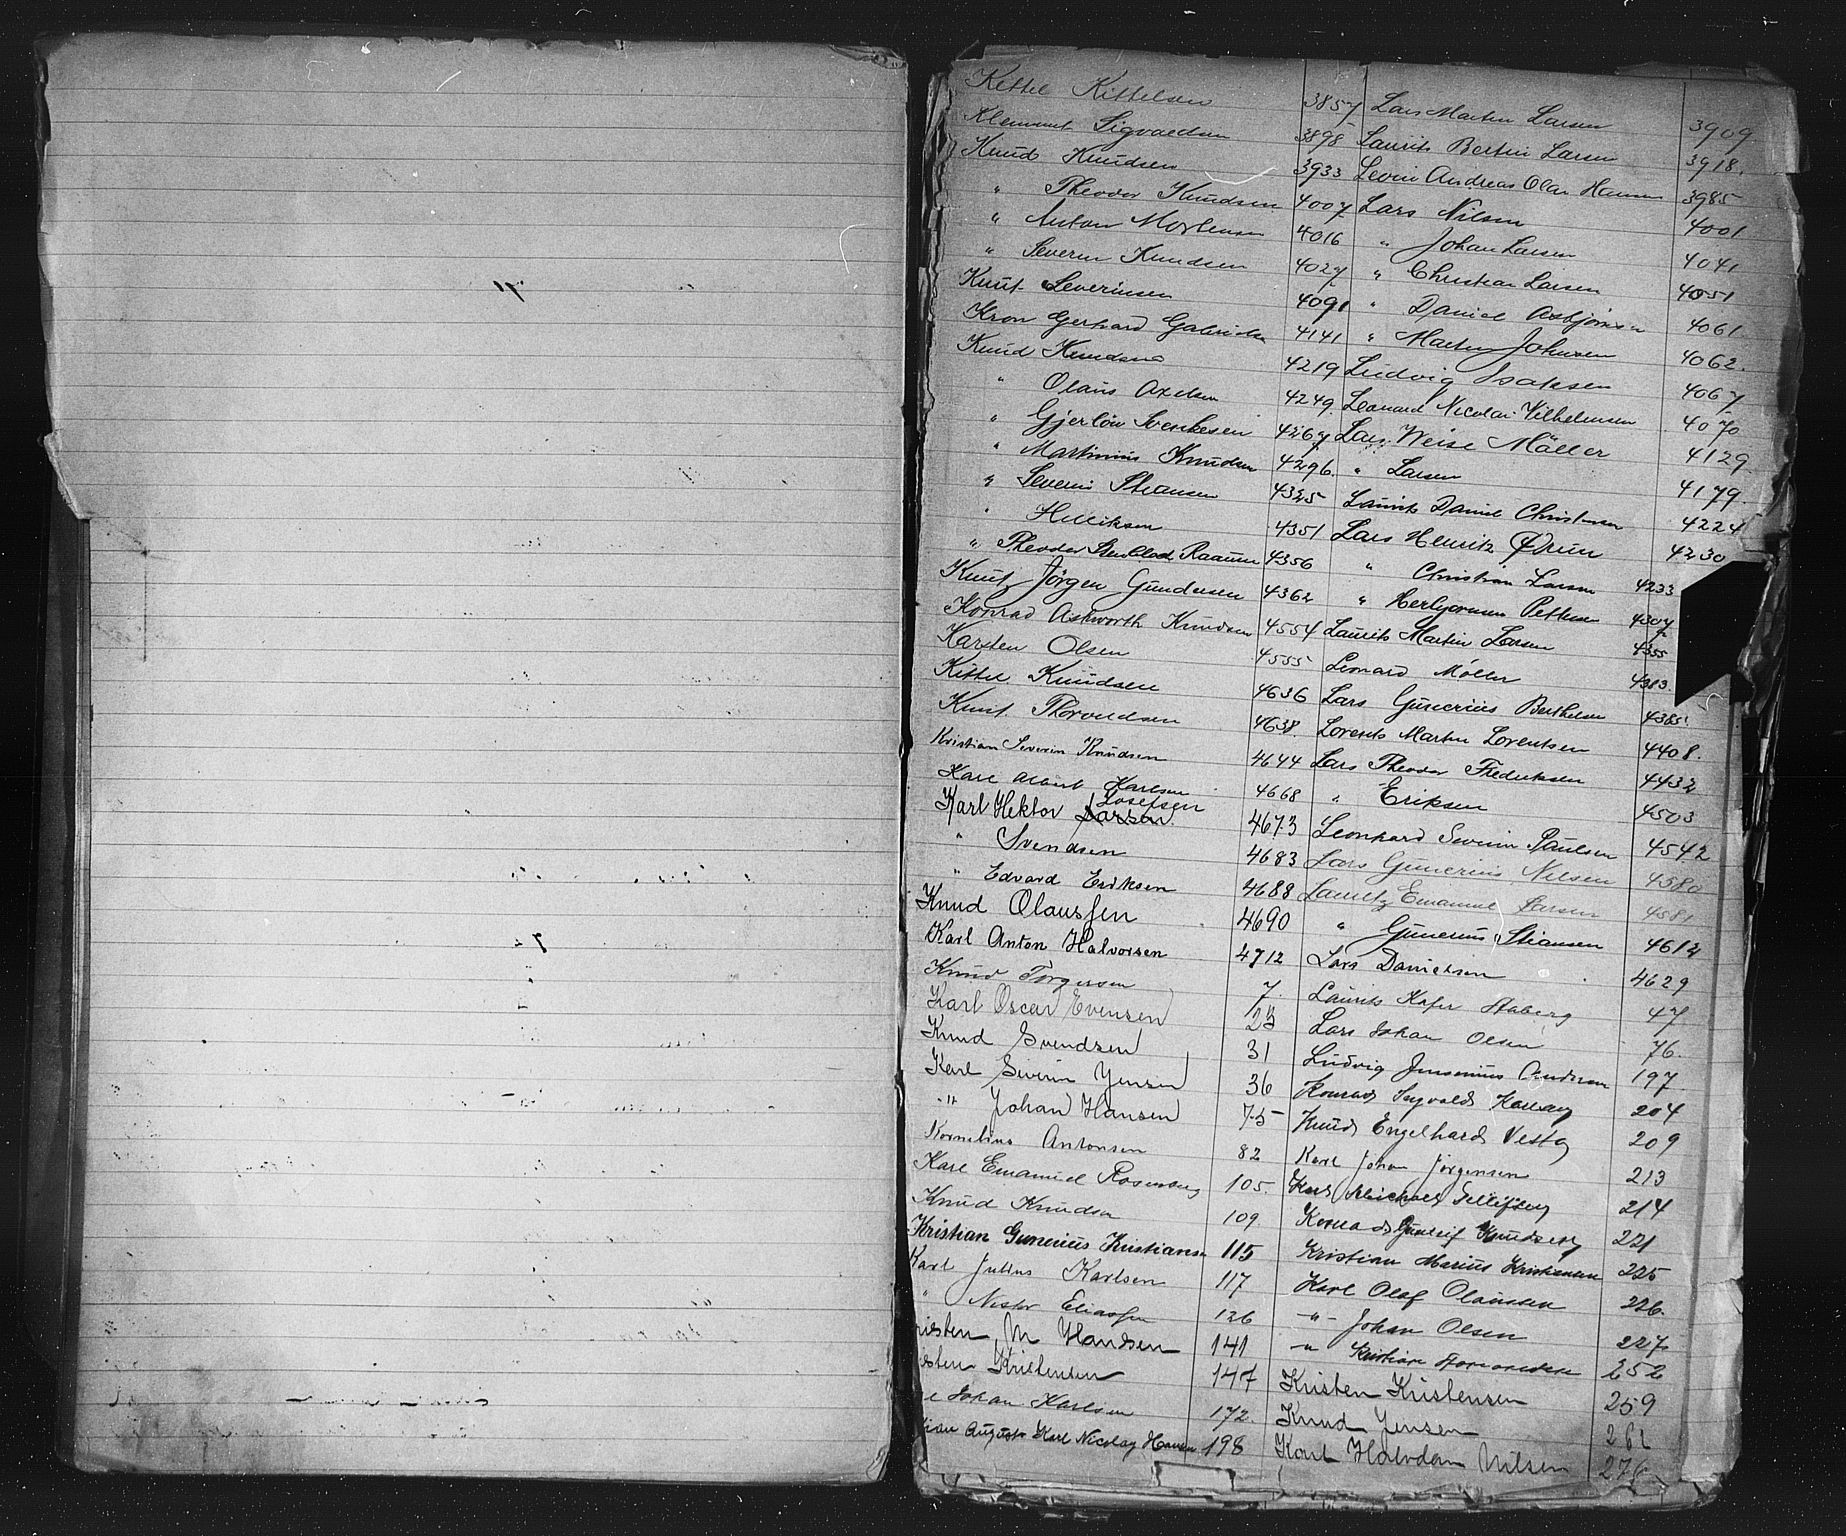 Kittel Kittelsen 3857
Klemmet Sigvaldsen 3898
Knud Knudsen 3933
" Theodor Knudsen 4007
" Anton Mortensen 4016
" Severin Knudsen 4027
Knut Severinsen 4091
Kron Gerhard Gabrielsen 4141
Knud Knudsen 4219
" Olaus Axelsen 4249.
" Gjerløw Svenkesen 4267
" Martinius Knudsen 4296.
" Severin Stiansen 4325
" Helliksen 4351
" Theodor Raaum 4356
Knut Jörgen Gundersen 4362
Konrad Ashworth Knudsen 4554
Karsten Olsen 4555
Kittel Knudsen 4636
Knut Thorvaldsen 4638.
Kristian Severin Knudsen 4644
Karl Albert Karlsen 4668
Karl Hektor Larsen Josefsen 4673
" Svendsen 4683
" Edvard Eriksen 4688
Knud Olaussen 4690
Karl Anton Halvorsen 4712
Knud Torgersen 7.
Karl Oscar Evensen 23
Knud Svendsen 31
Karl Severin Jensen 36
" Johan Hansen 75
Kornelius Antonsen 82
Karl Emanuel Rosenberg 105.
Knud Knudsen 109.
Kristian Gunerius Kristians 115
Karl Julius Karlsen 117
" Nestor Eliassen 126
risten M Handsen 141
isten Kristensen 147
Johan Karlsen 172.
August Karl Nicolay Hansen 198
Lars Martin Larsen 3909
Laurits Bertin Larsen 3918.
Levin Andreas Olai Hansen 3985
Lars Nilsen 4001
" Johan Larsen 4041
" Christian Larsen 4051
" Daniel Asbjörnsen 4061.
" Martin Johnsen 4062.
Ludvig Isaksen 4067
Leonard Nicolai Vilhelmsen 4070
Lars Weise Möller 4129
" Larsen 4179.
Laurits Daniel Christensen 4224
Lars Henrik Ørum 4230
" Christian Larsen 4233
" Pettersen 4307
Laurits Martin Larsen 4355
Leonard Møller 4383.
Lars Gunerius Berthelsen 4385
Lorents Martin Lorentsen 4408.
Lars Theodor Fredriksen 4432
" Eriksen 4503
Leonhard Severin Paulsen 4542
Lars Gunerius Nilsen 4580
Lauritz Emanuel Larsen 4581
" Gunerius Stiansen 4612
Lars Danielsen 4629
Laurits Staberg 47
Lars Johan Olsen 76.
Ludvig Jensenius Andersen 197
Konrad Sigvald 204
Knud Engelhard Vestby 209
Karl Johan Jörgensen 213
Karl Michael 214
Konrad Gunleif Knudsen 221
Kristian Marius Kristiansen 225
Karl Olaf Olaussen 226.
" Johan Olsen 227
" Kristian 252
Kristen Kristensen 259
Knud Jensen 261
Karl Halvdan Nilsen 276